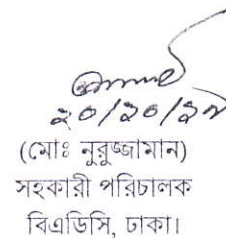 ২০/১০/১৭
(মোঃ নুরুজ্জামান)
সহকারী পরিচালক
বিএডিসি, ঢাকা।